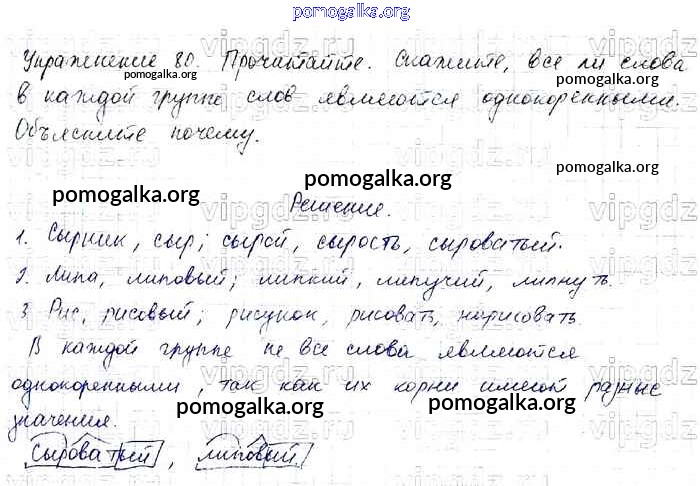 pomogalka.org
Упражнение 80. Прочитайте. Скажите, все ли слова
pomogalka.org
pomogalka.org
в каждой группе слов являются однокоренными.
Объясните почему.
pomogalka.org
pomogalka.org
pomogalka.org
Решение.
1. Сырник, сыр; сырой, сырость, сыроватый.
2. Липа, липовый; липкий, липучий, липнуть.
3. Рис, рисовый; рисунок, рисовать, нарисовать.
В каждой группе не все слова являются
однокоренными, так как их корни имеют разные
значения.
pomogalka.org
pomogalka.org
сыроватый, липовый
vipgdz.ru